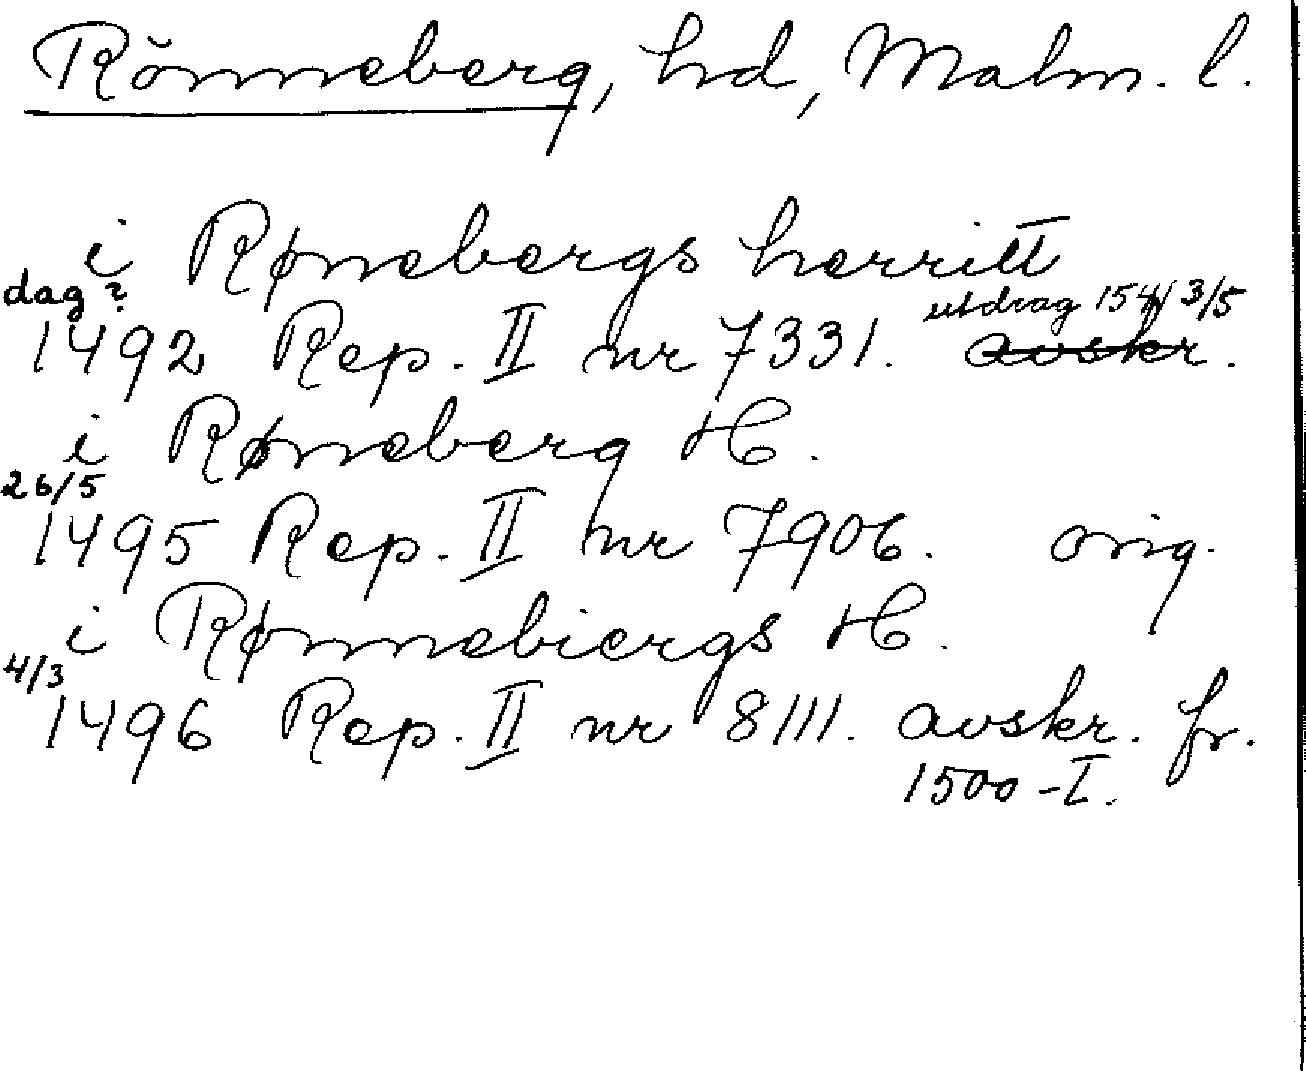 Rönneberg, hd, Malm. l.
i Rønebergs herritt
dag?
1492 Rep. II nr 7331. utdrag 3/5
avskr.
i Røneberg H.
26/5
1495 Rep. II nr 7906. orig.
i Rønnebiergs H.
4/3
1496 Rep. II nr 8111. avskr. fr.
1500-T.